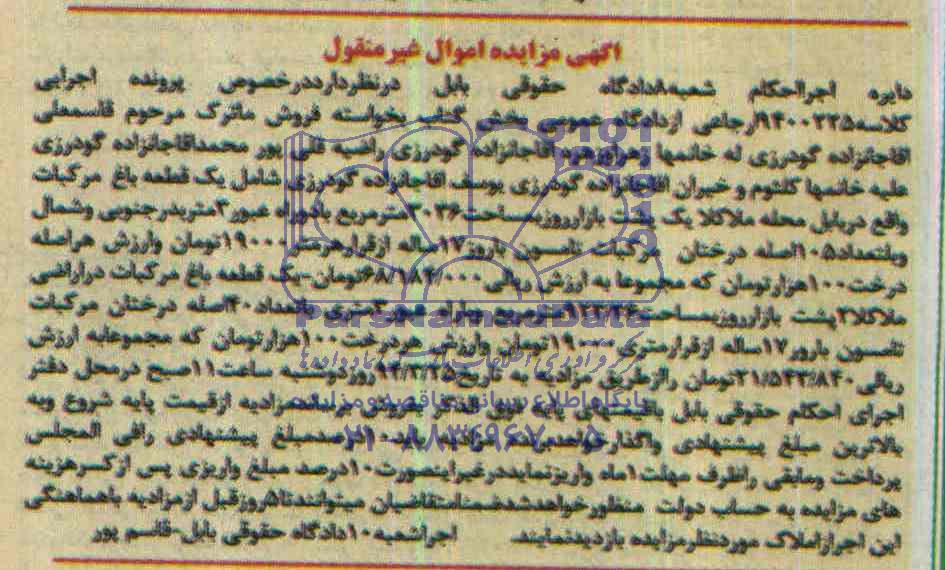 آگهی مزایده اموال غیرمنقول
دایره اجرااحکام شعبه۸دادگاه حقوقی بابل درنظردارددرخصوص پرونده اجرایی
کلاسه۹۴۰۰۲۲۵ارجاعی ازدادگاه عمومی بخش گتاب بخواسته فروش ماترک مرحوم قاسمعلی
اقاجانزاده گودرزی له خانمها زهراومریم اقاجانزاده گودرزی راضیه قلی پور محمداقاجانزاده گودرزی
علیه خانمها کلثوم و خیران اقاجانزاده گودرزی یوسف اقاجانزاده گودرزی شامل یک قطعه باغ مرکبات
واقع دربابل محله ملاکلا یک پشت بازارروزبمساحت۲۰۳۶مترمربع باهمراه عبور۳متریدرجنوبی وشمال
وباتعداد۱۰۵اصله درختان مرکبات تامسون باروز۱۷ساله ازقرارهرمتر۱۹۰۰۰تومان وارزش هراصله
درخت۱۰۰هزارتومان که مجموعا به ارزش ریالی تومان-یک قطعه باغ مرکبات دراراضی
ملاکلا۲پشت بازارروزبمساحت مترمربع وبراه عبور۳متری باتعداد۴۰اصله درختان مرکبات
تامسون بارور۱۷ساله ازقرارمتری ۱۹۰۰۰تومان وارزش هردرخت۱۰۰هزارتومان که مجموعابه ارزش
ریالی۳۱/۵۲۳/۸۴۰تومان راازطریق مزایده به تاریخ روزدوشنبه ساعت۱۱صبح درمحل دفتر
اجرای احکام حقوقی بابل باقیمتهای پایه فوق الذکر بفروش برساندمزایده ازقیمت پایه شروع وبه
بالاترین مبلغ پیشنهادی واگذارخواهدشدبرنده مزایده باید۱۰درصدمبلغ پیشنهادی رافی المجلس
پرداخت ومابقی راظرف مهلت۱ماه واریزنمایددرغیراینصورت۱۰درصد مبلغ واریزی پس ازکسرهزینه
های مزایده به حساب دولت منظورخواهدشدضمنامتقاضیان میتوانندتا۵روزقبل ازمزایده باهماهنگی
این اجراازاملاک موردنظرمزایده بازدیدنمایند. اجراشعبه۱۰دادگاه حقوقی بابل-قاسم پور
ParsNamadData
پایگاه اطلاع رسانی مناقصه و مزایده
۰۲۱-۸۸۳۴۹۶۷۰-۵